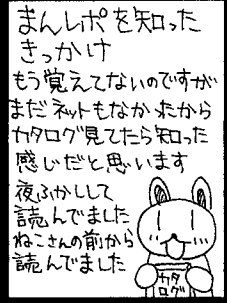 まんレポを知った
きっかけ
もう覚えてないのですが
まだネットもなかったから
カタログ見てたら知った
感じだと思います
夜ふかしして
読んでました
ねこさんの前から
読んでました
カタ
ログ